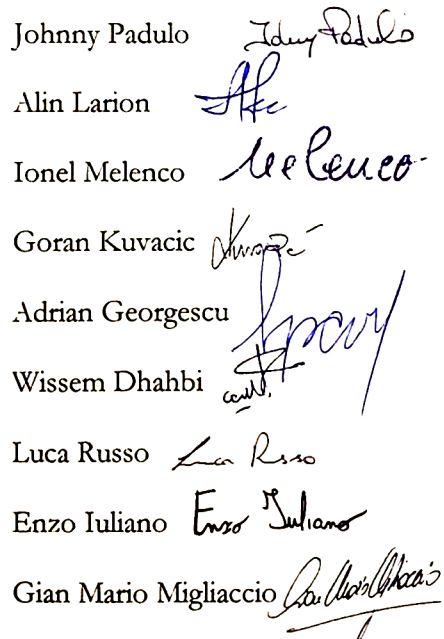 Johnny Padulo Johnny Padulo
Alin Larion
Ionel Melenco Melenco
Goran Kuvacic
Adrian Georgescu
Wissem Dhahbi
Luca Russo Luca Russo
Enzo Iuliano Enzo Iuliano
Gian Mario Migliaccio